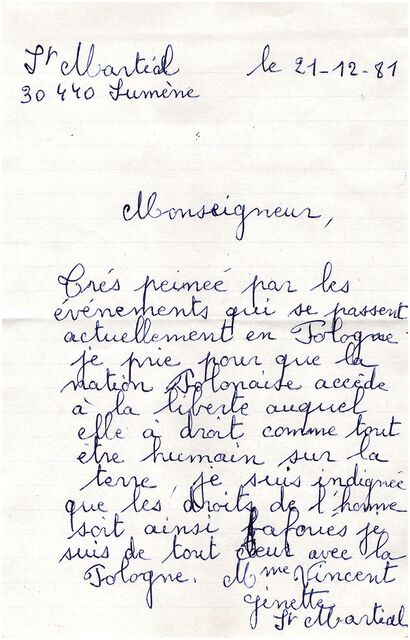 St Martial le 21-12-81
30 440 Sumène
Monseigneur,
Trés peineé par les
événements qui se passent
actuellement en Pologne
je prie pour que la
nation Polonaise accède
à la liberte auquel
elle à droit comme tout
être humain sur la
terre, je suis indignée
que les droits de l'homme
soit ainsi bafoues je
suis de tout cœur avec la
Pologne. Mme Vincent
Ginette
St Martial